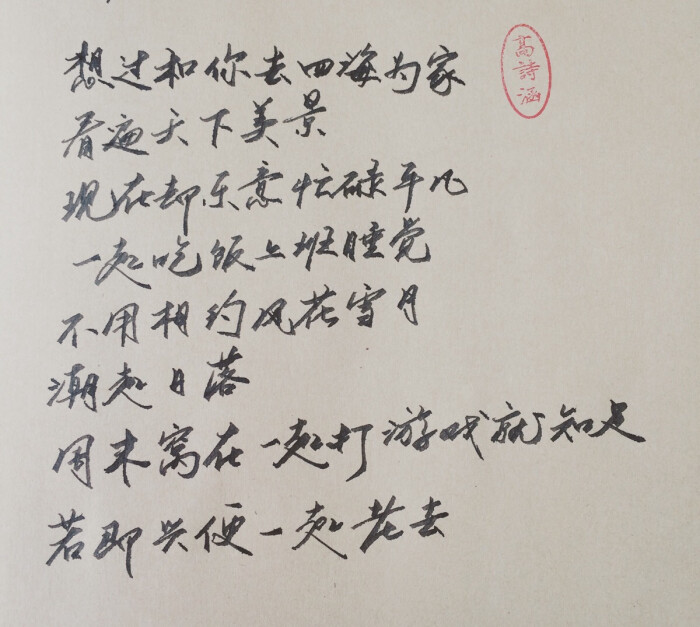 想过和你去四海为家
看遍天下美景
现在却乐意忙碌平凡
一起吃饭上班睡觉
不用相约风花雪月
潮起日落
周末窝在一起打游戏就知足
若即兴便一起老去
高詩涵